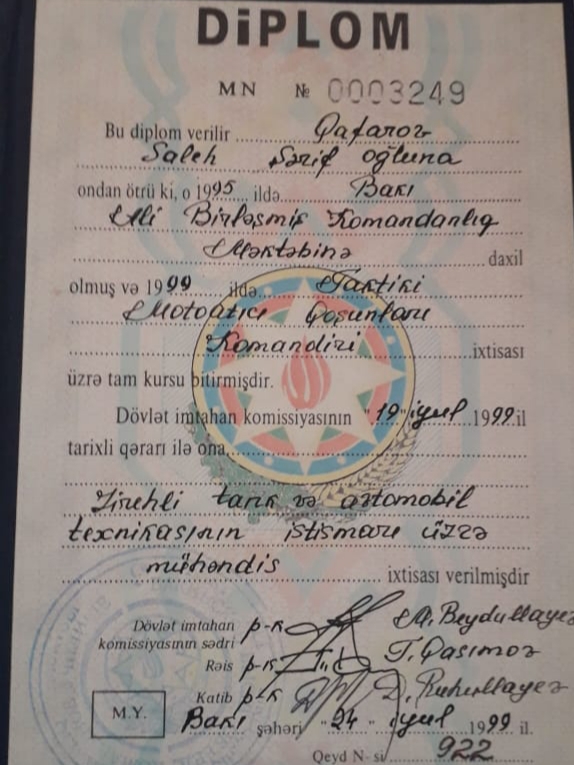 DİPLOM
MN № 0003249
Bu diplom verilir Qafarov
Saleh Şərif oğluna
ondan ötrü ki, o 1995 ildə Bakı
Ali Birləşmiş Komandanlıq
Məktəbinə daxil
olmuş və 1999 ildə Taktiki
Motoatıcı Qoşunları
Komandiri ixtisası
üzrə tam kursu bitirmişdir.
Dövlət imtahan komissiyasının "19" iyul 1999 il
tarixli qərarı ilə ona
Zirehli tank və avtomobil
texnikasının istismarı üzrə
mühəndis ixtisası verilmişdir
Dövlət imtahan p-k M. Beydullayev
komissiyasının sədri
Rəis p-k T. Qasımov
Katib p-k D. Ruhullayev
M.Y. Bakı şəhəri "24" iyul 1999 il.
Qeyd N-si 922